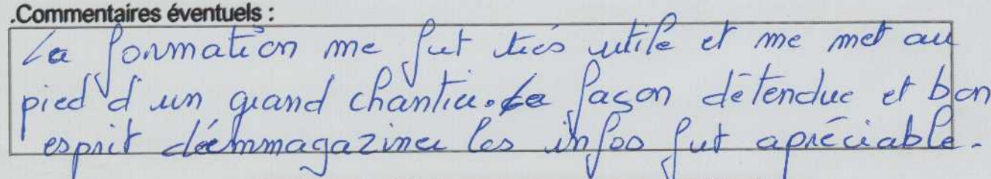 .Commentaires éventuels :
La formation me fut très utile et me met au
pied d'un grand chantier. La façon détendue et bon
esprit d'emmagaziner les infos fut apréciable.